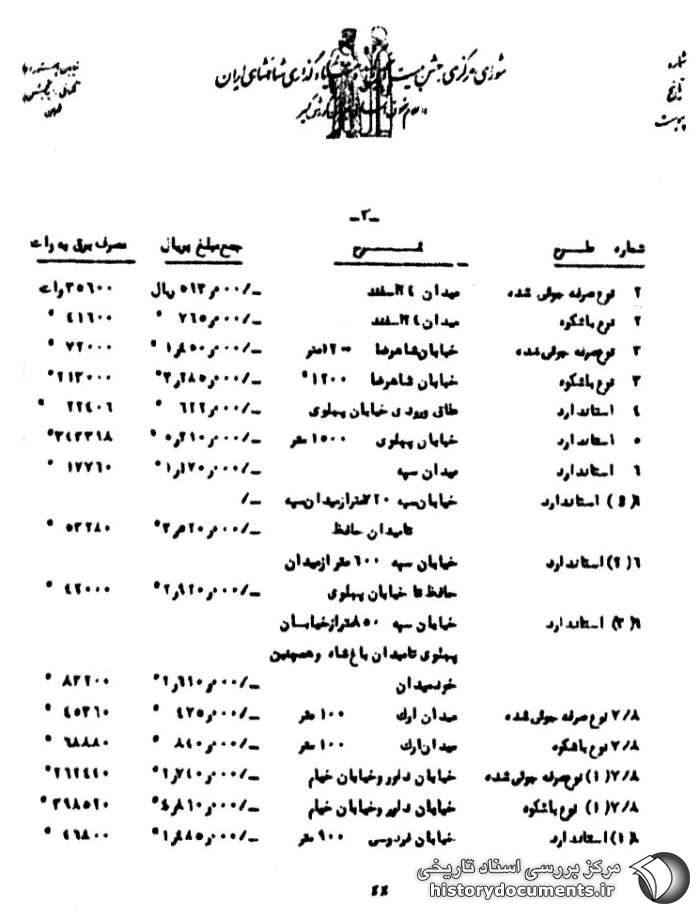 شماره
تاریخ
پیوست
شورای مرکزی جشن شاهنشاهی ایران
-۳-
شماره طرح شرح جمع مبلغ بریال مصرف برق به وات
۲ نوع صرفه جوئی شده میدان ۲۴ اسفند ‎۵۱۳ر۰۰۰/- ریال ۳۵۶۰۰ وات
۲ نوع باشکوه میدان ۲۴ اسفند ‎۷۶۵ر۰۰۰/- " ۴۱۶۰۰ "
۳ نوع صرفه جوئی شده خیابان شاهرضا ۱۲۰۰ متر ‎۱ر۸۵۰ر۰۰۰/- " ۷۲۰۰۰ "
۳ نوع باشکوه خیابان شاهرضا ۱۲۰۰ " ‎۳ر۲۸۵ر۰۰۰/- " ۲۱۳۰۰۰ "
۴ استاندارد طاق ورودی خیابان پهلوی ‎۶۲۲ر۰۰۰/- " ۲۲۴۰۶ "
۵ استاندارد خیابان پهلوی ۱۵۰۰ متر ‎۵ر۲۱۰ر۰۰۰/- " ۳۴۲۳۱۸ "
۶ استاندارد میدان سپه ‎۱ر۱۷۵ر۰۰۰/- " ۱۷۷۶۰ "
استاندارد خیابان سپه ۷۲۰ متر از میدان سپه -/
تا میدان حافظ ۰۰۰/- " ۵۳۲۸۰ "
۶(۲) استاندارد خیابان سپه ۶۰۰ متر از میدان
حافظ تا خیابان پهلوی ‎۲ر۹۲۰ر۰۰۰/- " ۴۲۰۰۰ "
(۳) استاندارد خیابان سپه ۸۵۰ متر از خیابان
پهلوی تا میدان باغ شاه و همچنین
خود میدان ‎۲ر۶۱۰ر۰۰۰/- " ۸۳۲۰۰ "
۷/۸ نوع صرفه جوئی شده میدان ارک ۱۰۰ متر ‎۴۷۵ر۰۰۰/- " ۴۵۳۶۰ "
۷/۸ نوع باشکوه میدان ارک ۱۰۰ متر ‎۸۴۰ر۰۰۰/- " ۶۸۸۸۰ "
۷/۸(۱) نوع صرفه جوئی شده خیابان داور و خیابان خیام ‎۲ر۷۴۰ر۰۰۰/- " ۲۶۲۴۴۰ "
۷/۸(۱) نوع باشکوه خیابان داور و خیابان خیام ‎۴ر۸۶۰ر۰۰۰/- " ۳۹۸۵۲۰ "
(۱) استاندارد خیابان فردوسی ۹۰۰ متر ‎۱ر۸۸۵ر۰۰۰/- " ۴۶۸۰۰ "
مرکز بررسی اسناد تاریخی
historydocuments.ir